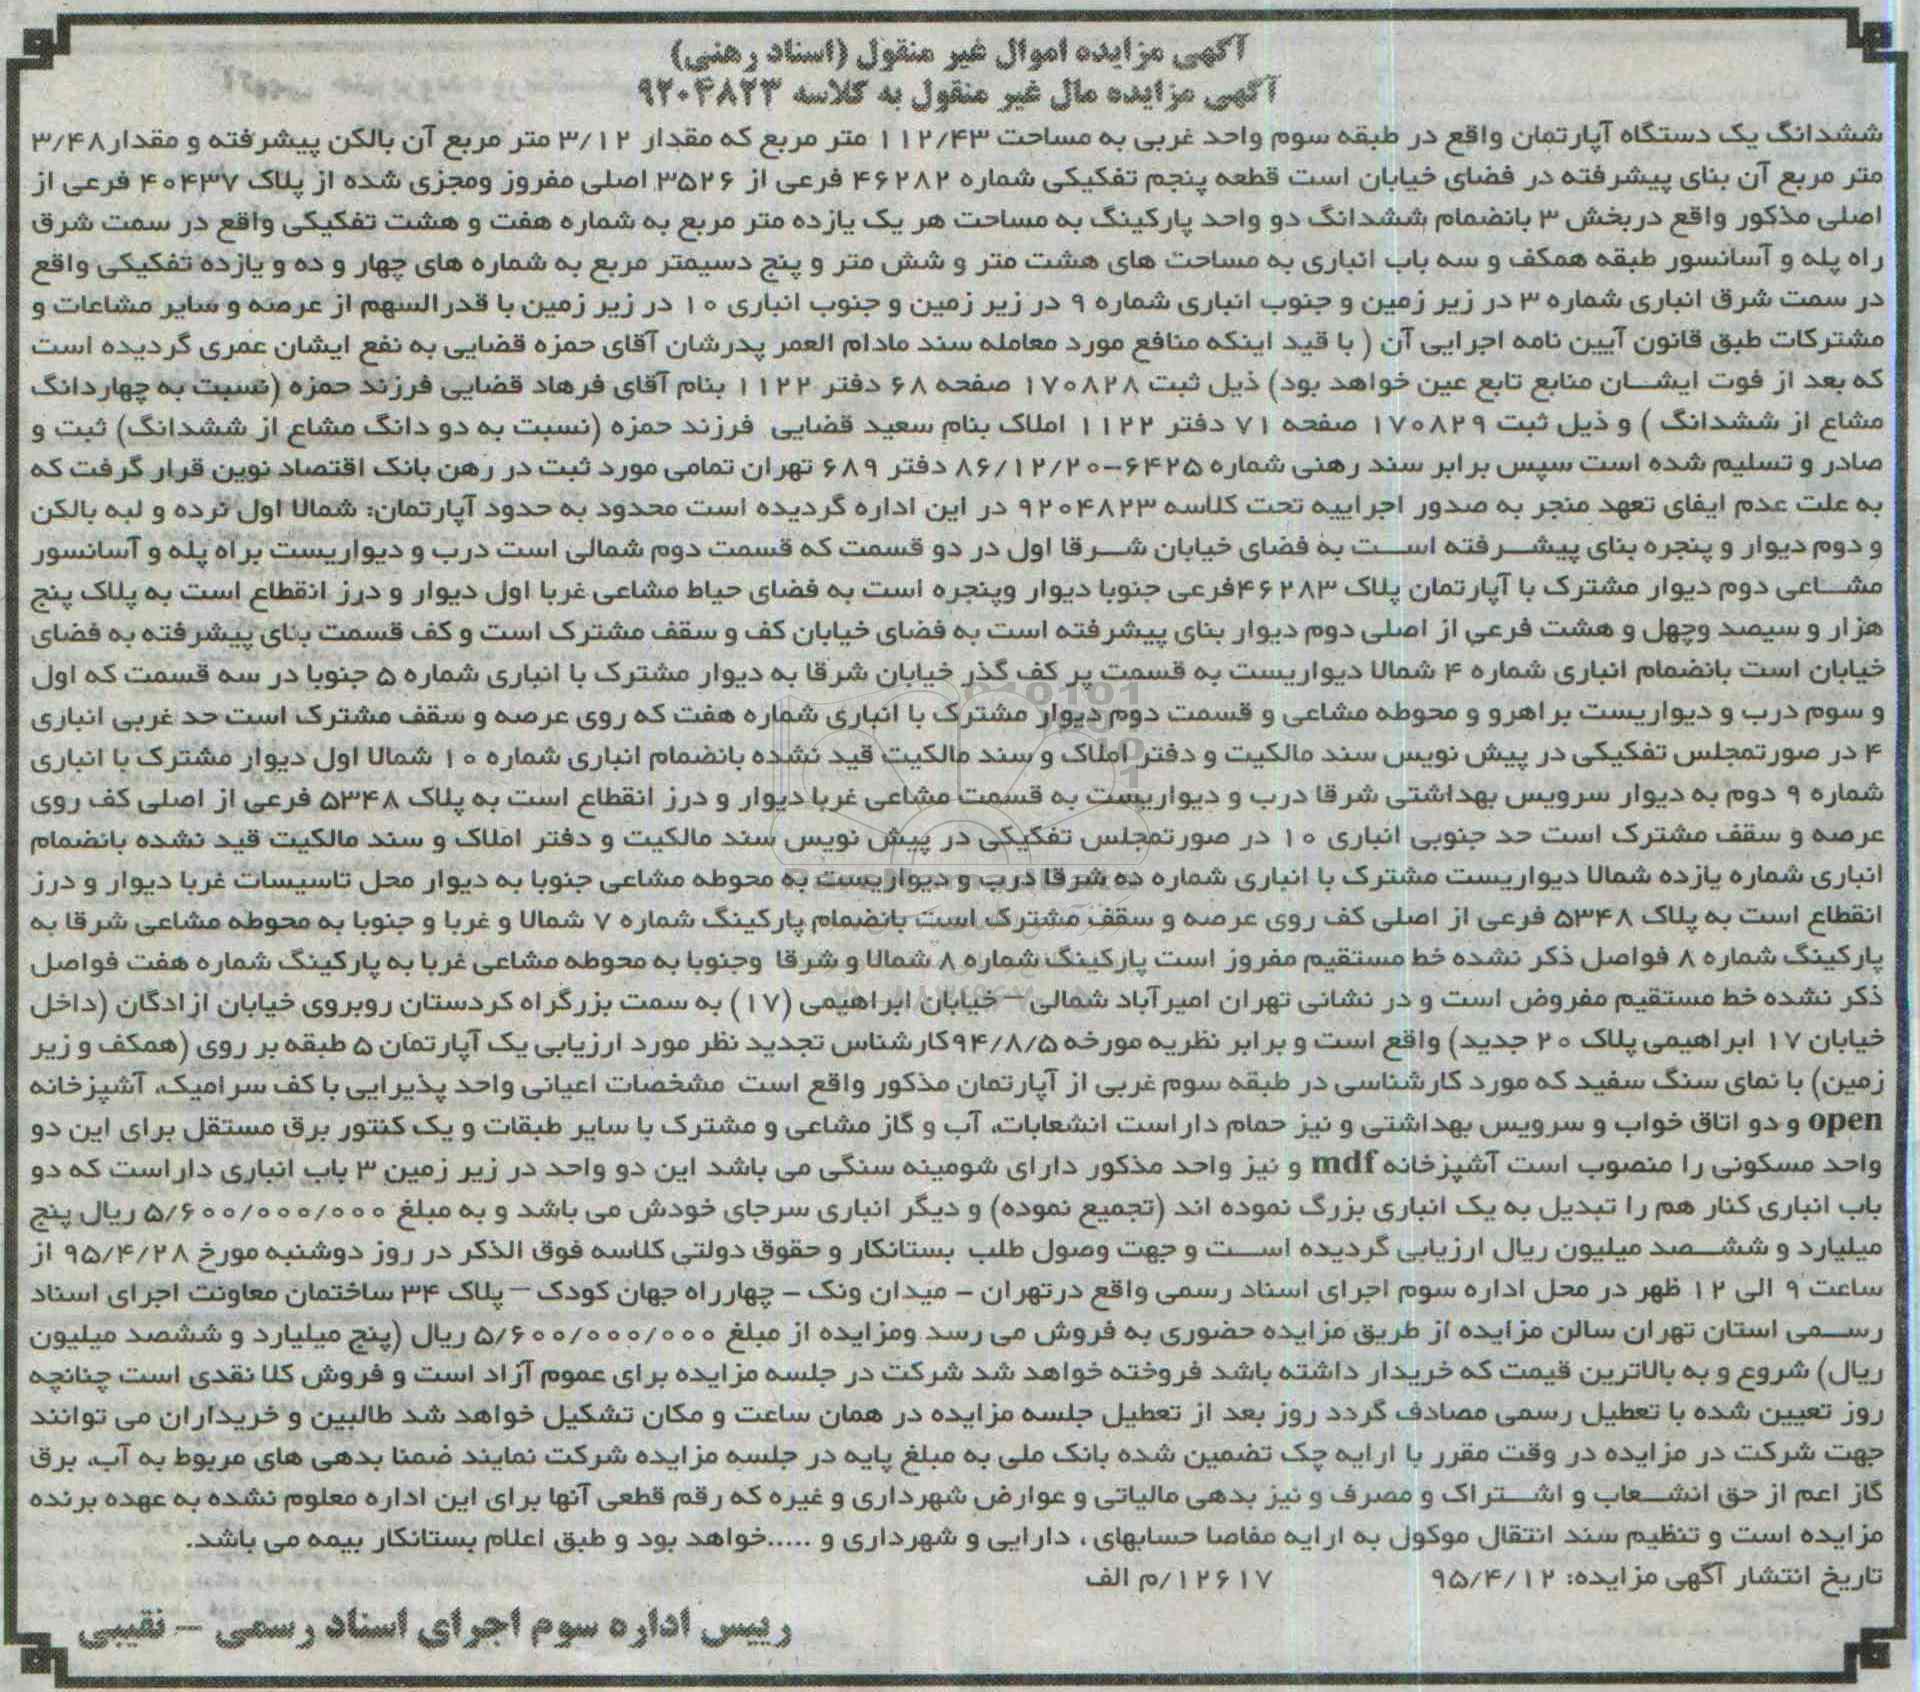 آگهی مزایده اموال غیر منقول (اسناد رهنی)
آگهی مزایده مال غیر منقول به کلاسه ۹۲۰۴۸۲۳
ششدانگ یک دستگاه آپارتمان واقع در طبقه سوم واحد غربی به مساحت ۱۱۲/۴۳ متر مربع که مقدار ۳/۱۲ متر مربع آن بالکن پیشرفته و مقدار۳/۴۸
متر مربع آن بنای پیشرفته در فضای خیابان است قطعه پنجم تفکیکی شماره ۴۶۲۸۲ فرعی از ۳۵۲۶ اصلی مفروز ومجزی شده از پلاک ۴۰۴۳۷ فرعی از
اصلی مذکور واقع دربخش ۳ بانضمام ششدانگ دو واحد پارکینگ به مساحت هر یک یازده متر مربع به شماره هفت و هشت تفکیکی واقع در سمت شرق
راه پله و آسانسور طبقه همکف و سه باب انباری به مساحت های هشت متر و شش متر و پنج دسیمتر مربع به شماره های چهار و ده و یازده تفکیکی واقع
در سمت شرق انباری شماره ۳ در زیر زمین و جنوب انباری شماره ۹ در زیر زمین و جنوب انباری ۱۰ در زیر زمین با قدرالسهم از عرصه و سایر مشاعات و
مشترکات طبق قانون آیین نامه اجرایی آن ( با قید اینکه منافع مورد معامله سند مادام العمر پدرشان آقای حمزه قضایی به نفع ایشان عمری گردیده است
که بعد از فوت ایشان منابع تابع عین خواهد بود) ذیل ثبت ۱۷۰۸۲۸ صفحه ۶۸ دفتر ۱۱۲۲ بنام آقای فرهاد قضایی فرزند حمزه (نسبت به چهاردانگ
مشاع از ششدانگ ) و ذیل ثبت ۱۷۰۸۲۹ صفحه ۷۱ دفتر ۱۱۲۲ املاک بنام سعید قضایی فرزند حمزه (نسبت به دو دانگ مشاع از ششدانگ) ثبت و
صادر و تسلیم شده است سپس برابر سند رهنی شماره ۶۴۲۵-۸۶/۱۲/۲۰ دفتر ۶۸۹ تهران تمامی مورد ثبت در رهن بانک اقتصاد نوین قرار گرفت که
به علت عدم ایفای تعهد منجر به صدور اجراییه تحت کلاسه ۹۲۰۴۸۲۳ در این اداره گردیده است محدود به حدود آپارتمان: شمالا اول نرده و لبه بالکن
و دوم دیوار و پنجره بنای پیشرفته است به فضای خیابان شرقا اول در دو قسمت که قسمت دوم شمالی است درب و دیواریست براه پله و آسانسور
مشاعی دوم دیوار مشترک با آپارتمان پلاک ۴۶۲۸۳فرعی جنوبا دیوار وپنجره است به فضای حیاط مشاعی غربا اول دیوار و درز انقطاع است به پلاک پنج
هزار و سیصد وچهل و هشت فرعی از اصلی دوم دیوار بنای پیشرفته است به فضای خیابان کف و سقف مشترک است و کف قسمت بنای پیشرفته به فضای
خیابان است بانضمام انباری شماره ۴ شمالا دیواریست به قسمت پر کف گذر خیابان شرقا به دیوار مشترک با انباری شماره ۵ جنوبا در سه قسمت که اول
و سوم درب و دیواریست براهرو و محوطه مشاعی و قسمت دوم دیوار مشترک با انباری شماره هفت که روی عرصه و سقف مشترک است حد غربی انباری
۴ در صورتمجلس تفکیکی در پیش نویس سند مالکیت و دفتر املاک و سند مالکیت قید نشده بانضمام انباری شماره ۱۰ شمالا اول دیوار مشترک با انباری
شماره ۹ دوم به دیوار سرویس بهداشتی شرقا درب و دیواریست به قسمت مشاعی غربا دیوار و درز انقطاع است به پلاک ۵۳۴۸ فرعی از اصلی کف روی
عرصه و سقف مشترک است حد جنوبی انباری ۱۰ در صورتمجلس تفکیکی در پیش نویس سند مالکیت و دفتر املاک و سند مالکیت قید نشده بانضمام
انباری شماره یازده شمالا دیواریست مشترک با انباری شماره ده شرقا درب و دیواریست به محوطه مشاعی جنوبا به دیوار محل تاسیسات غربا دیوار و درز
انقطاع است به پلاک ۵۳۴۸ فرعی از اصلی کف روی عرصه و سقف مشترک است بانضمام پارکینگ شماره ۷ شمالا و غربا و جنوبا به محوطه مشاعی شرقا به
پارکینگ شماره ۸ فواصل ذکر نشده خط مستقیم مفروز است پارکینگ شماره ۸ شمالا و شرقا وجنوبا به محوطه مشاعی غربا به پارکینگ شماره هفت فواصل
ذکر نشده خط مستقیم مفروض است و در نشانی تهران امیرآباد شمالی – خیابان ابراهیمی (۱۷) به سمت بزرگراه کردستان روبروی خیابان ازادگان (داخل
خیابان ۱۷ ابراهیمی پلاک ۲۰ جدید) واقع است و برابر نظریه مورخه ۹۴/۸/۵کارشناس تجدید نظر مورد ارزیابی یک آپارتمان ۵ طبقه بر روی (همکف و زیر
زمین) با نمای سنگ سفید که مورد کارشناسی در طبقه سوم غربی از آپارتمان مذکور واقع است مشخصات اعیانی واحد پذیرایی با کف سرامیک، آشپزخانه
open و دو اتاق خواب و سرویس بهداشتی و نیز حمام داراست انشعابات، آب و گاز مشاعی و مشترک با سایر طبقات و یک کنتور برق مستقل برای این دو
واحد مسکونی را منصوب است آشپزخانه mdf و نیز واحد مذکور دارای شومینه سنگی می باشد این دو واحد در زیر زمین ۳ باب انباری داراست که دو
باب انباری کنار هم را تبدیل به یک انباری بزرگ نموده اند (تجمیع نموده) و دیگر انباری سرجای خودش می باشد و به مبلغ ۵/۶۰۰/۰۰۰/۰۰۰ ریال پنج
میلیارد و ششصد میلیون ریال ارزیابی گردیده است و جهت وصول طلب بستانکار و حقوق دولتی کلاسه فوق الذکر در روز دوشنبه مورخ ۹۵/۴/۲۸ از
ساعت ۹ الی ۱۲ ظهر در محل اداره سوم اجرای اسناد رسمی واقع درتهران – میدان ونک – چهارراه جهان کودک – پلاک ۳۴ ساختمان معاونت اجرای اسناد
رسمی استان تهران سالن مزایده از طریق مزایده حضوری به فروش می رسد ومزایده از مبلغ ۵/۶۰۰/۰۰۰/۰۰۰ ریال (پنج میلیارد و ششصد میلیون
ریال) شروع و به بالاترین قیمت که خریدار داشته باشد فروخته خواهد شد شرکت در جلسه مزایده برای عموم آزاد است و فروش کلا نقدی است چنانچه
روز تعیین شده با تعطیل رسمی مصادف گردد روز بعد از تعطیل جلسه مزایده در همان ساعت و مکان تشکیل خواهد شد طالبین و خریداران می توانند
جهت شرکت در مزایده در وقت مقرر با ارایه چک تضمین شده بانک ملی به مبلغ پایه در جلسه مزایده شرکت نمایند ضمنا بدهی های مربوط به آب، برق
گاز اعم از حق انشعاب و اشتراک و مصرف و نیز بدهی مالیاتی و عوارض شهرداری و غیره که رقم قطعی آنها برای این اداره معلوم نشده به عهده برنده
مزایده است و تنظیم سند انتقال موکول به ارایه مفاصا حسابهای ، دارایی و شهرداری و .....خواهد بود و طبق اعلام بستانکار بیمه می باشد.
تاریخ انتشار آگهی مزایده: ۹۵/۴/۱۲ ۱۲۶۱۷/م الف
رییس اداره سوم اجرای اسناد رسمی – نقیبی